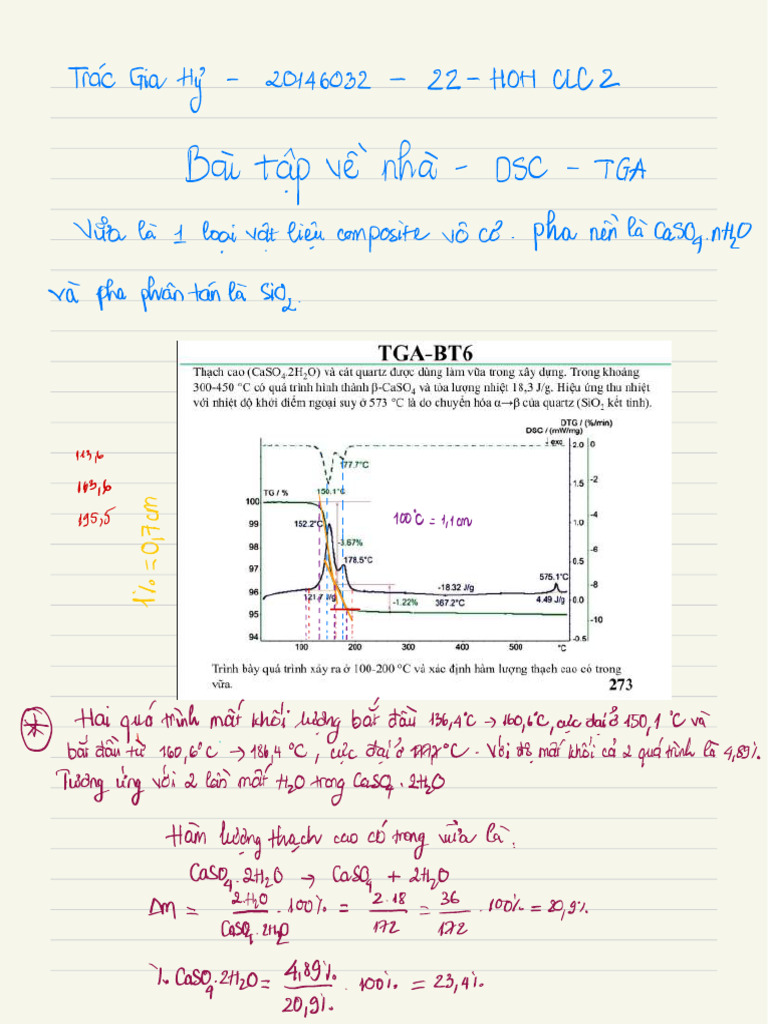 Trác Gia Hỷ - 20146032 - 22-HOH CLC2
Bài tập về nhà - DSC - TGA
Vữa là 1 loại vật liệu composite vô cơ. pha nền là CaSO₄.nH₂O
và pha phân tán là SiO₂.
TGA-BT6
Thạch cao (CaSO₄.2H₂O) và cát quartz được dùng làm vữa trong xây dựng. Trong khoảng
300-450 °C có quá trình hình thành β-CaSO₄ và tỏa lượng nhiệt 18,3 J/g. Hiệu ứng thu nhiệt
với nhiệt độ khởi điểm ngoại suy ở 573 °C là do chuyển hóa α→β của quartz (SiO₂ kết tinh).
DTG / (%/min)
DSC / (mW/mg)
↓ exo
2.0 0
177.7°C
113,6
163,6
195,5
1% = 0,7cm
TG / %
150.1°C
-2
1.5
100
100°C = 1,1cm
-4
99
152.2°C
1.0
98
-3.67%
-6
97
178.5°C
0.5
575.1°C
-8
96
121.7 J/g
-18.32 J/g
-1.22%
367.2°C
4.49 J/g
0.0
95
-10
94
-0.5
100 200 300 400 500 °C
Trình bày quá trình xảy ra ở 100-200 °C và xác định hàm lượng thạch cao có trong
vữa.
273
Hai quá trình mất khối lượng bắt đầu 136,4°C → 160,6°C, cực đại ở 150,1°C và
bắt đầu từ 160,6°C → 186,4°C, cực đại ở 177,7°C. Với độ mất khối cả 2 quá trình là 4,89%.
Tương ứng với 2 lần mất H₂O trong CaSO₄.2H₂O
Hàm lượng thạch cao có trong vữa là:
CaSO₄.2H₂O → CaSO₄ + 2H₂O
Δm = 2H₂O / CaSO₄.2H₂O . 100% = 2.18 / 172 = 36 / 172 . 100% = 20,9%
%CaSO₄.2H₂O = 4,89% / 20,9% . 100% = 23,4%